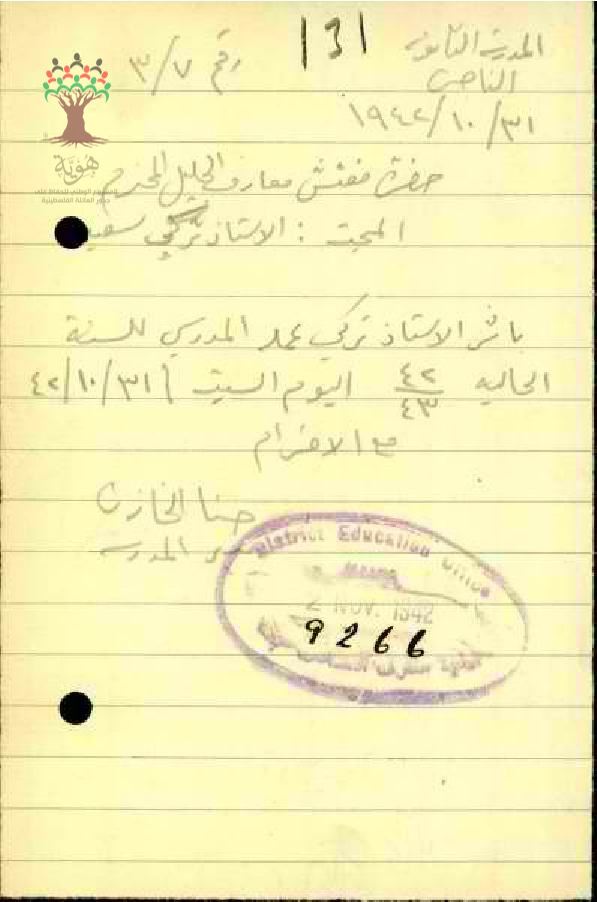 131
المدرسة الثانوية
رقم ٣/٧
الناصرة
١٩٤٢/١٠/٣١
هوية
المشروع الوطني للحفاظ على
جذور العائلة الفلسطينية
حضرة مفتش معارف الجليل المحترم
المبحث : الاستاذ تركي سعيد
باشر الاستاذ تركي عمله المدرسي للسنة
الحالية ٤٢/٤٣ اليوم السبت ٤٢/١٠/٣١
مع الاحترام
حنا الخازن
مدير المدرسة
District Education Office
2 NOV. 1942
9266